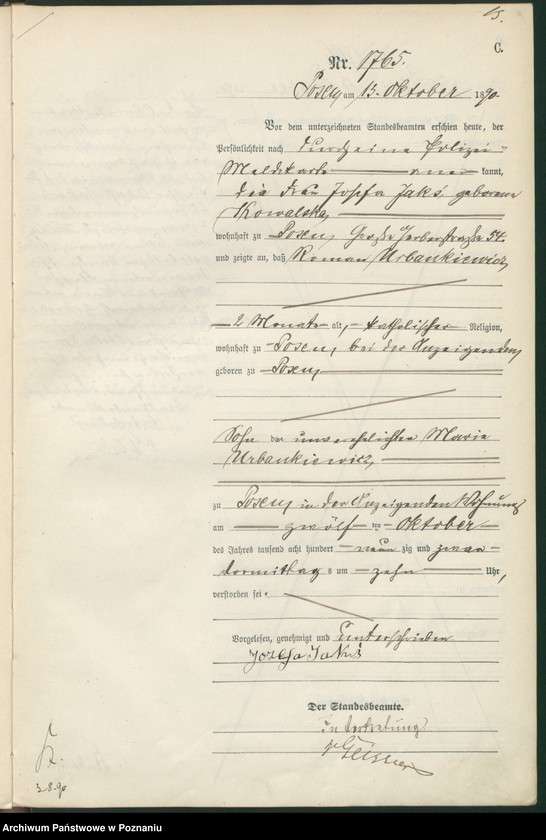 15.
C.
Nr. 1765.
Posen, am 13. Oktober 1890
Vor dem unterzeichneten Standesbeamten erschien heute, der
Persönlichkeit nach durch eine Polizei-
Meldekarte aner kannt,
die Frau Josefa Jakś geborene
Kowalska,
wohnhaft zu Posen, Große Gerberstraße 54.
und zeigte an, daß Roman Urbankiewicz,
2 Monate alt, katholischer Religion,
wohnhaft zu Posen, bei der Anzeigenden,
geboren zu Posen,
Sohn der unverehelichten Marie
Urbankiewicz,
zu Posen, in der Anzeigenden Wohnung
am zwölf ten Oktober
des Jahres tausend acht hundert neun zig und zwar
Vormittags um zehn Uhr,
verstorben sei.
Vorgelesen, genehmigt und unterschrieben
Jozefa Jakś
Der Standesbeamte.
In Vertretung
3.8.90
Archiwum Państwowe w Poznaniu